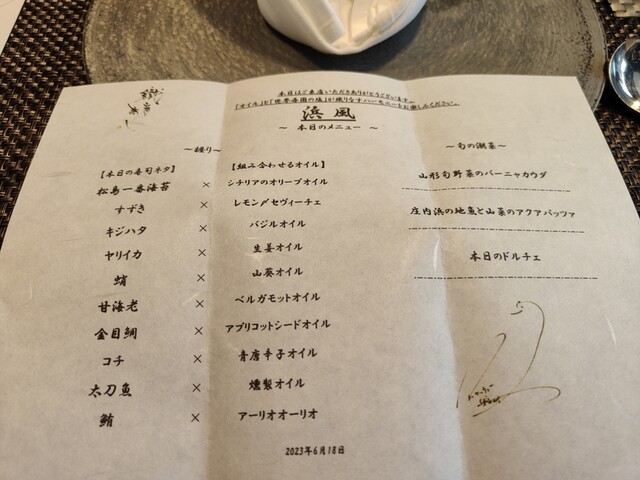 本日はご来店いただきありがとうございます。
「オイル」と「世界各国の塩」が織りなすハーモニーをお楽しみください。
浜風
～ 本日のメニュー ～
～握り～
【本日の寿司ネタ】 【組み合わせるオイル】
松島一番海苔 × シチリアのオリーブオイル
すずき × レモン〆セヴィーチェ
キジハタ × バジルオイル
ヤリイカ × 生姜オイル
蛸 × 山葵オイル
甘海老 × ベルガモットオイル
金目鯛 × アプリコットシードオイル
コチ × 青唐辛子オイル
太刀魚 × 燻製オイル
鮪 × アーリオオーリオ
～旬の潮菜～
山形旬野菜のバーニャカウダ
庄内浜の地魚と山菜のアクアパッツァ
本日のドルチェ
2023年6月18日